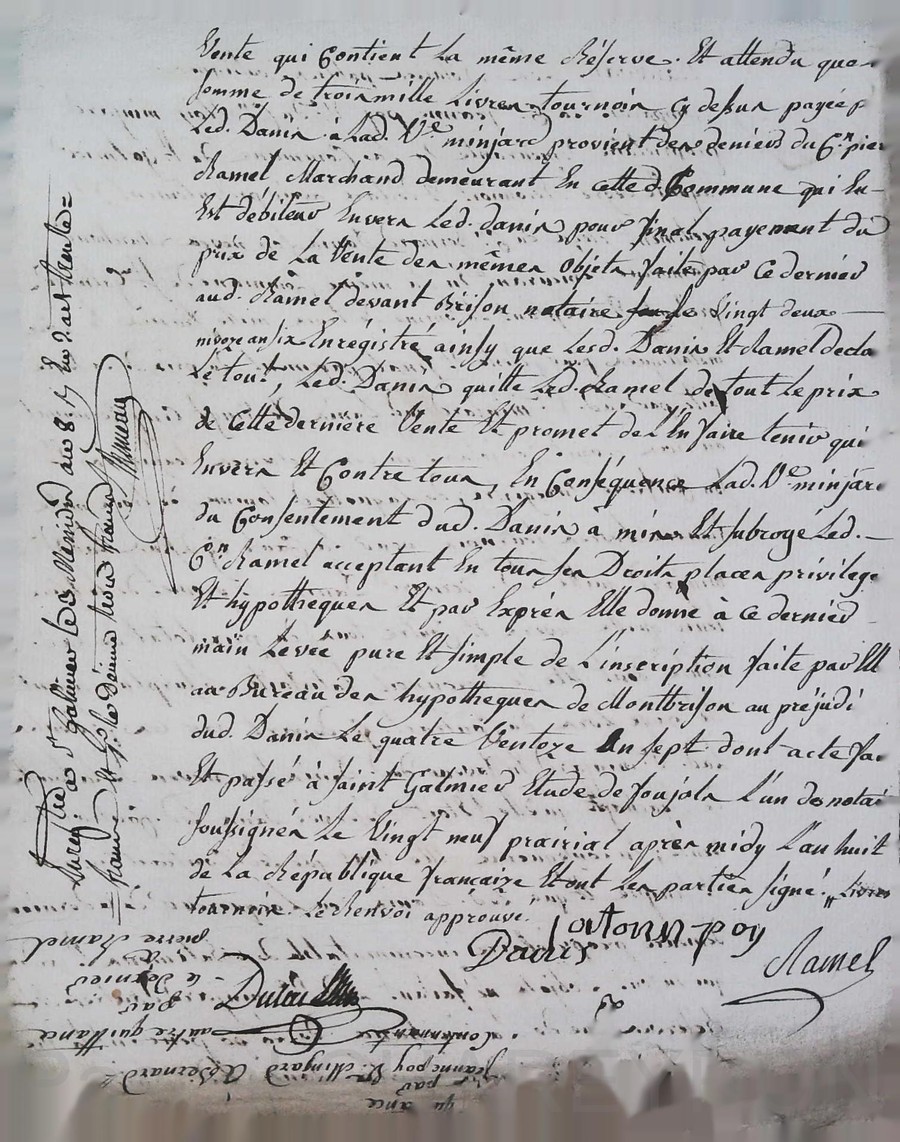 Vente qui Contient La même Réserve. Et attendu que
somme de trois mille Livres tournois Cy dessus payée p
Led. Danis à Lad. Ve minjard provient des deniers du Cn pier
Ramel Marchand demeurant En cette d. Commune qui Lu
Est débiteur Envers Led. danis pour final payement du
prix de La Vente des mêmes Objets faite par Ce dernier
aud. Ramel devant Brison notaire Vingt deux
nivoze an six Enregistré ainsy que Lesd. Danis Et Ramel decla
Le tout, Led. Danis quitte Led. Ramel de tout Le prix
de Cette dernière Vente Et promet de L'En faire tenir qui
Envers Et Contre tous, En Conséquence Lad. Ve minjar
du Consentement dud. Danis a mis Et subrogé Led.
Cn Ramel acceptant En tous ses Droits places privilege
Et hypotheques Et par Exprès Elle donne à Ce dernier
main Levée pure Et simple de L'inscription faite par Ell
au Bureau des hypotheques de Montbrison au préjudi
dud. Danis Le quatre Ventoze an sept dont acte fa
Et passé à Saint Galmier Etude de Soujols L'un des notai
soussignés Le Vingt neuf prairial après midy L'an huit
de La République francaize Et ont Les parties signé. „ Livres
tournois. Le Renvoi approuvé.
Danis
Ramel
Enregtré à St Galmier Le 3 Messidor an 8
francs
pierre Ramel
ce dernier
par
autre quittance
Contenant
Jeanne poy Ve Minjard à Bernard
par